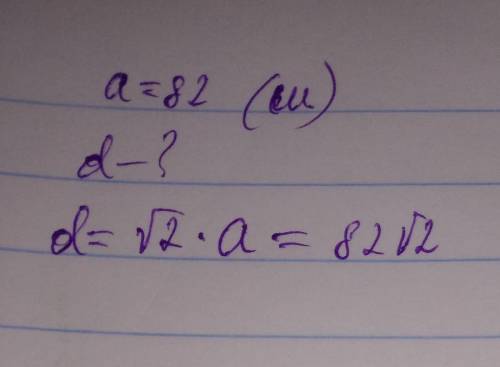 a=82 (см)
d-?
d=√2·a=82√2